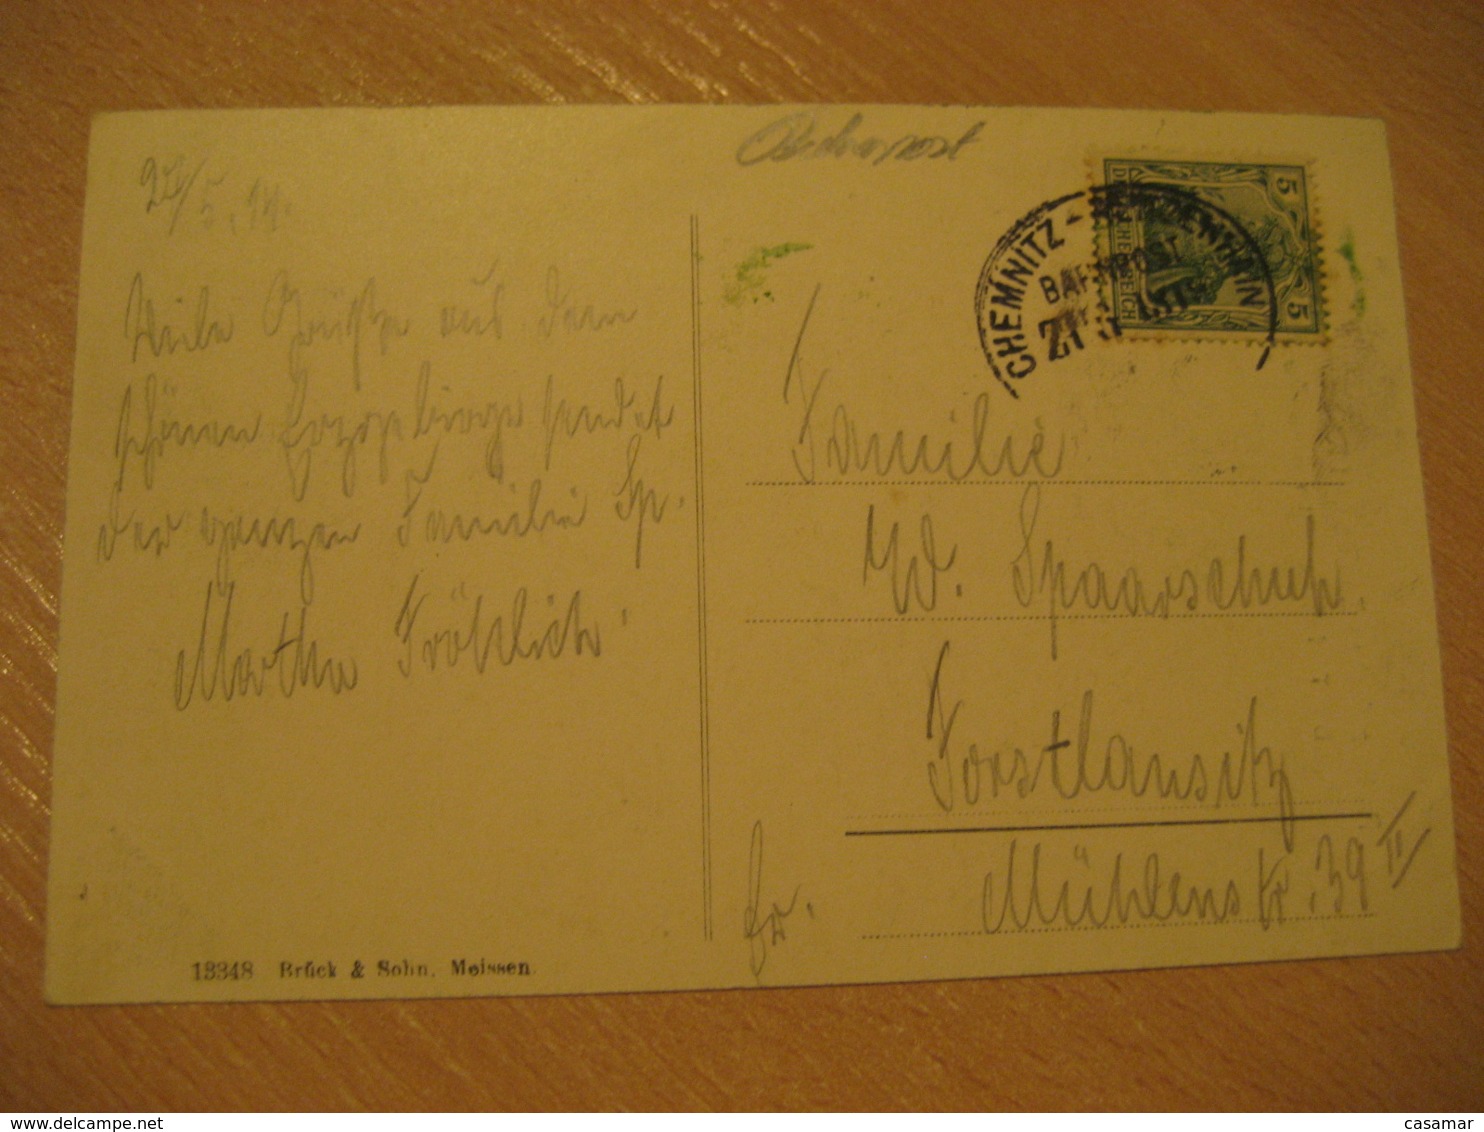 Bahnpost
5.14.
Viele Grüße aus dem
schönen Erzgebirge sendet
der ganzen Familie Sp.
Martha Fröhlich.
13348 Brück & Sohn, Meissen.
CHEMNITZ -
BAHNPOST
5
5
Familie
W. Spaarschuh.
Forstlausitz
Mühlenstr. 39 II
casamar
www.delcampe.net